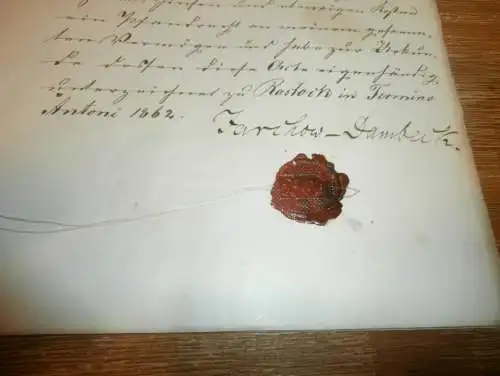 und etwaigen Kosten
ein Pfandrecht an meinem gesamm-
ten Vermögen und habe zur Urkun-
de dessen diese Acte eigenhändig
unterzeichnet zu Rostock in Termino
Antoni 1862.
Jarchow-Dambeck.